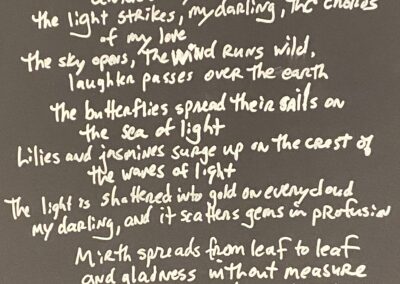 the light strikes, my darling, the chords
of my love
the sky opens, the wind runs wild,
laughter passes over the earth
the butterflies spread their sails on
the sea of light
Lilies and jasmines surge up on the crest of
the waves of light
The light is shattered into gold on every cloud
my darling, and it scatters gems in profusion
Mirth spreads from leaf to leaf
and gladness without measure